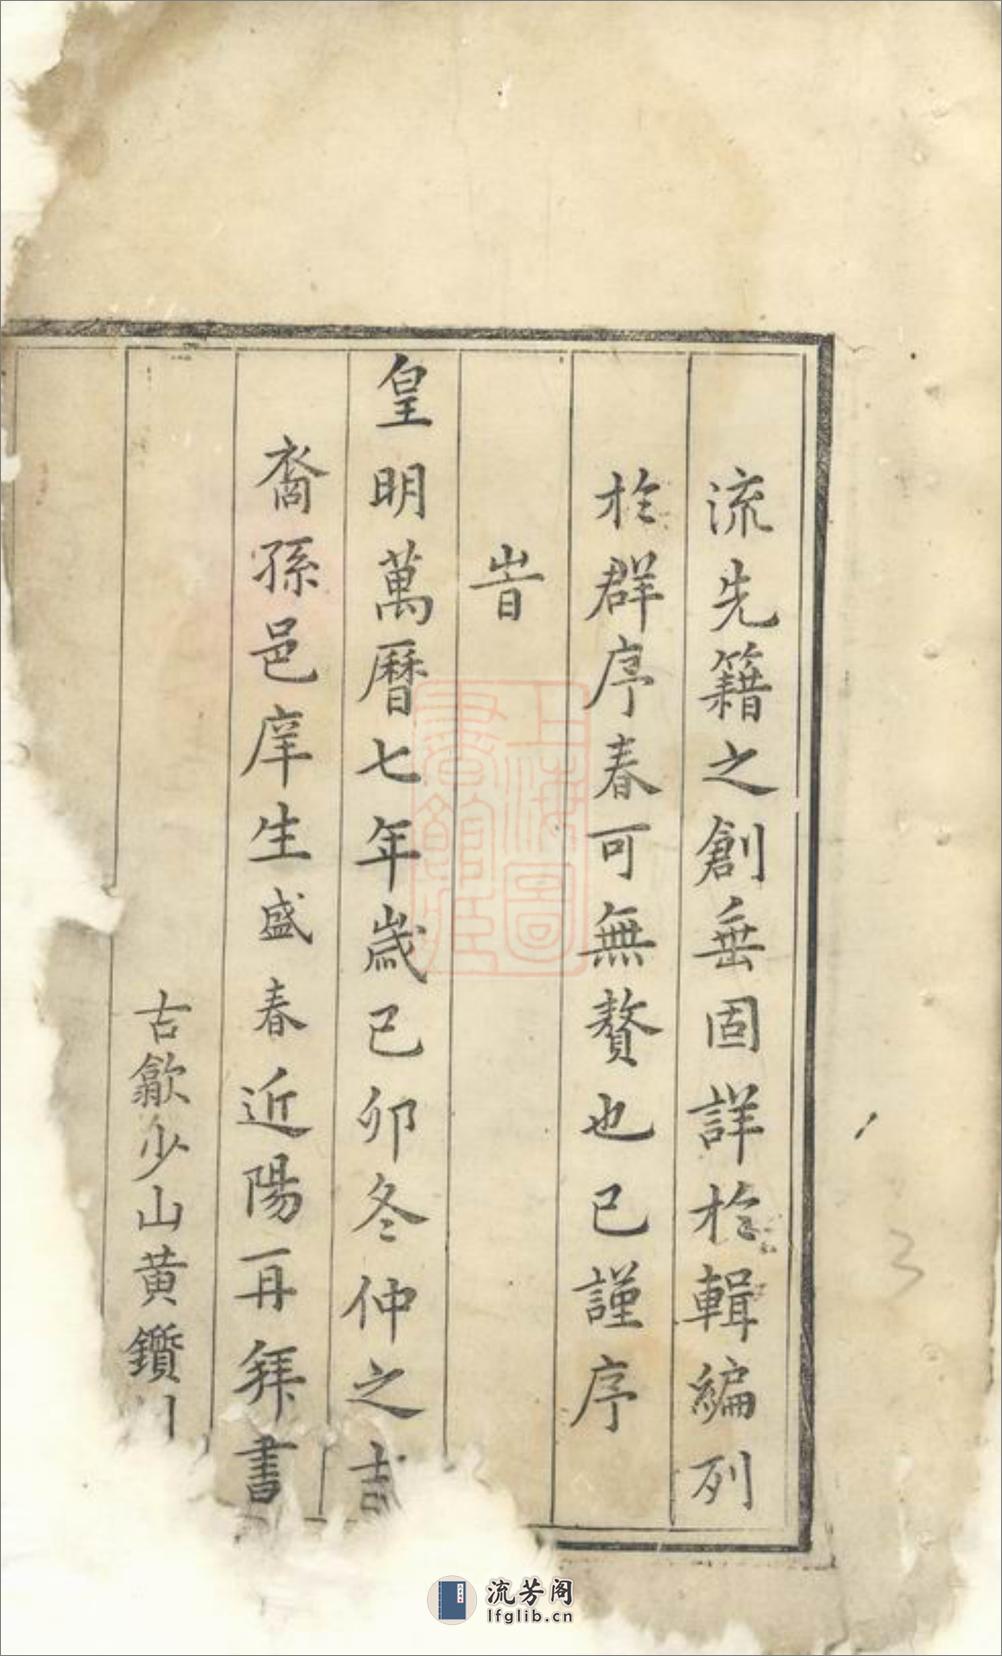 流先籍之創垂固詳於輯編列
於群序春可無贅也已謹序
旹
皇明萬曆七年歲己卯冬仲之吉
裔孫邑庠生盛春近陽再拜書
古歙少山黄鑽
上海圖書館藏
3
流芳阁
lfglib.cn